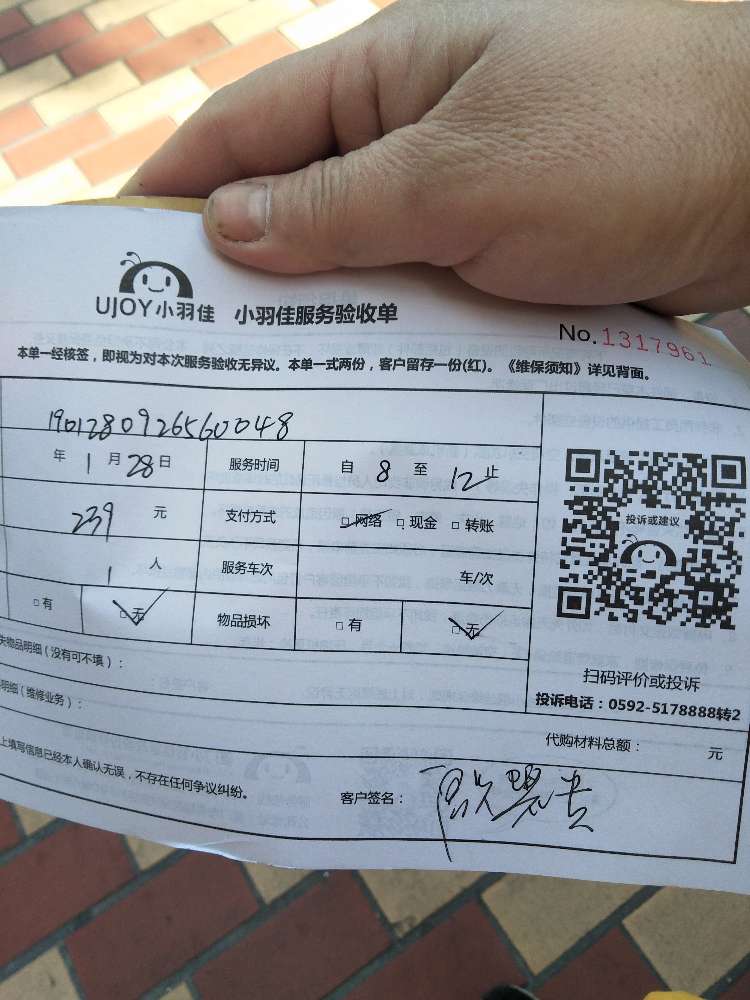 UJOY小羽佳 小羽佳服务验收单
No.1317961
本单一经核签，即视为对本次服务验收无异议。本单一式两份，客户留存一份(红)。《维保须知》详见背面。
1901280926560048
年 1 月 28 日 服务时间 自 8 至 12 止
239 元 支付方式 □网络 □现金 □转账
1 人 服务车次 车/次
□有 □无 物品损坏 □有 □无
投诉或建议
扫码评价或投诉
投诉电话：0592-5178888转2
失物品明细（没有可不填）：
明细（维修业务）：
代购材料总额： 元
上填写信息已经本人确认无误，不存在任何争议纠纷。
客户签名：